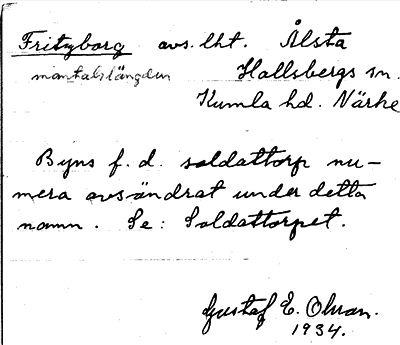 Frityborg avs. lht. Ålsta
mantalslängden Hallsbergs sn.
Kumla hd. Närke
Byns f. d. soldattorp nu-
mera avsöndrat under detta
namn. Se: Soldattorpet.
Gustaf E. Olsson.
1934.